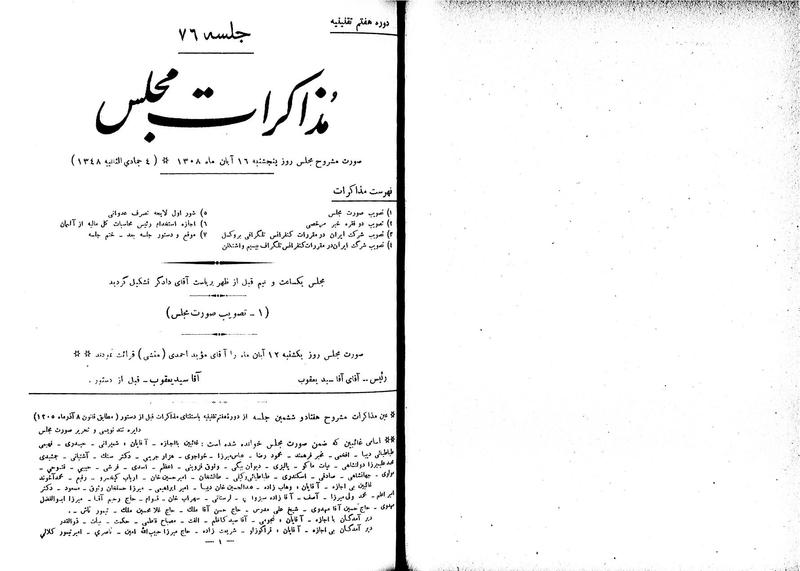 دوره هفتم تقنینیه
جلسه ۷۶
مذاکرات مجلس
صورت مشروح مجلس روز پنجشنبه ۱۶ آبان ماه ۱۳۰۸ * ( ۴ جمادی الثانیه ۱۳۴۸ )
فهرست مذاکرات
۱) تصویب صورت مجلس
۲) تصویب دو فقره خبر مرخصی
۳) تصویب شرکت ایران در مقررات کنفرانس تلگرافی بروکسل
۴) تصویب شرکت ایران در مقررات کنفرانس تلگراف بیسیم واشنگتن
۵) شور اول لایحه تصرف عدوانی
۶) اجازه استخدام رئیس محاسبات کل مالیه از آلمان
۷) موقع و دستور جلسه بعد - ختم جلسه
مجلس یکساعت و نیم قبل از ظهر بریاست آقای دادگر تشکیل گردید
( ۱ - تصویب صورت مجلس )
صورت مجلس روز یکشنبه ۱۲ آبان ماه را آقای مؤید احمدی (منشی) قرائت نمودند **
رئیس - آقای آقا سید یعقوب
آقا سید یعقوب - قبل از دستور.
* عین مذاکرات مشروح هفتاد و ششمین جلسه از دوره هفتم تقنینیه باستثنای مذاکرات قبل از دستور ( مطابق قانون ۸ آذر ماه ۱۳۰۵ )
دایره تند نویسی و تحریر صورت مجلس
** اسامی غائبین که ضمن صورت مجلس خوانده شده است : غائبین بااجازه - آقایان : شیرانی - حیدری - فهیمی
طباطبائی دیبا - افخمی - مخبر فرهمند - محمود رضا - عباس میرزا - خواجوی - هزار جریبی - دکتر سنک - آشتیانی - جمشیدی
محمد علیمیرزا دولتشاهی - بیات ماکو - پالیزی - دیوان بیگی - وثوق قزوینی - اعظم - اسدی - قرشی - حبیبی - فتوحی -
مولوی - جهانشاهی - صادقی - اسکندری - طباطبائی وکیلی - طالشخان - امیرحسین خان - ارباب کیخسرو - رفیع - محمد آخوند
غائبین بی اجازه - آقایان : وهاب زاده - عبدالحسین خان دیبا - امیر ابراهیمی - میرزا حسنخان وثوق - مسعود - دکتر
امیر اعلم - محمد ولی میرزا - آصف - آقا زاده سبزواری - لرستانی - سهراب خان - قوام - حاج رحیم آقا - میرزا ابوالفضل
مهدوی - حاج حسین آقا مهدوی - شیخ علی مدرس - حاج حسن آقا ملک - حاج غلامحسین ملک - تیمور تاش -
دیر آمدگان با اجازه - آقایان : نجومی - آقا سید کاظم - الفت - مصباح فاطمی - حکمت - بیات - ذوالقدر
دیر آمدگان بی اجازه - آقایان : قراگوزلو - شریعت زاده - حاج میرزا حبیب الله امین - ناصری - امیر تیمور کلالی
- ۱ -